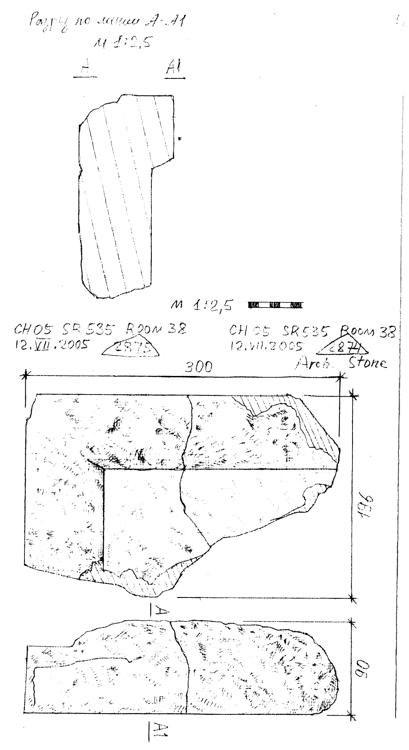 Разрез по линии А-А1
М 1:2,5
А А1
М 1:2,5
CH05 SR535 ROOM 38
12.VII.2005 2875
CH 05 SR535 Room 38
12.VII.2005 2874
Arch. Stone
300
196
А
90
А1